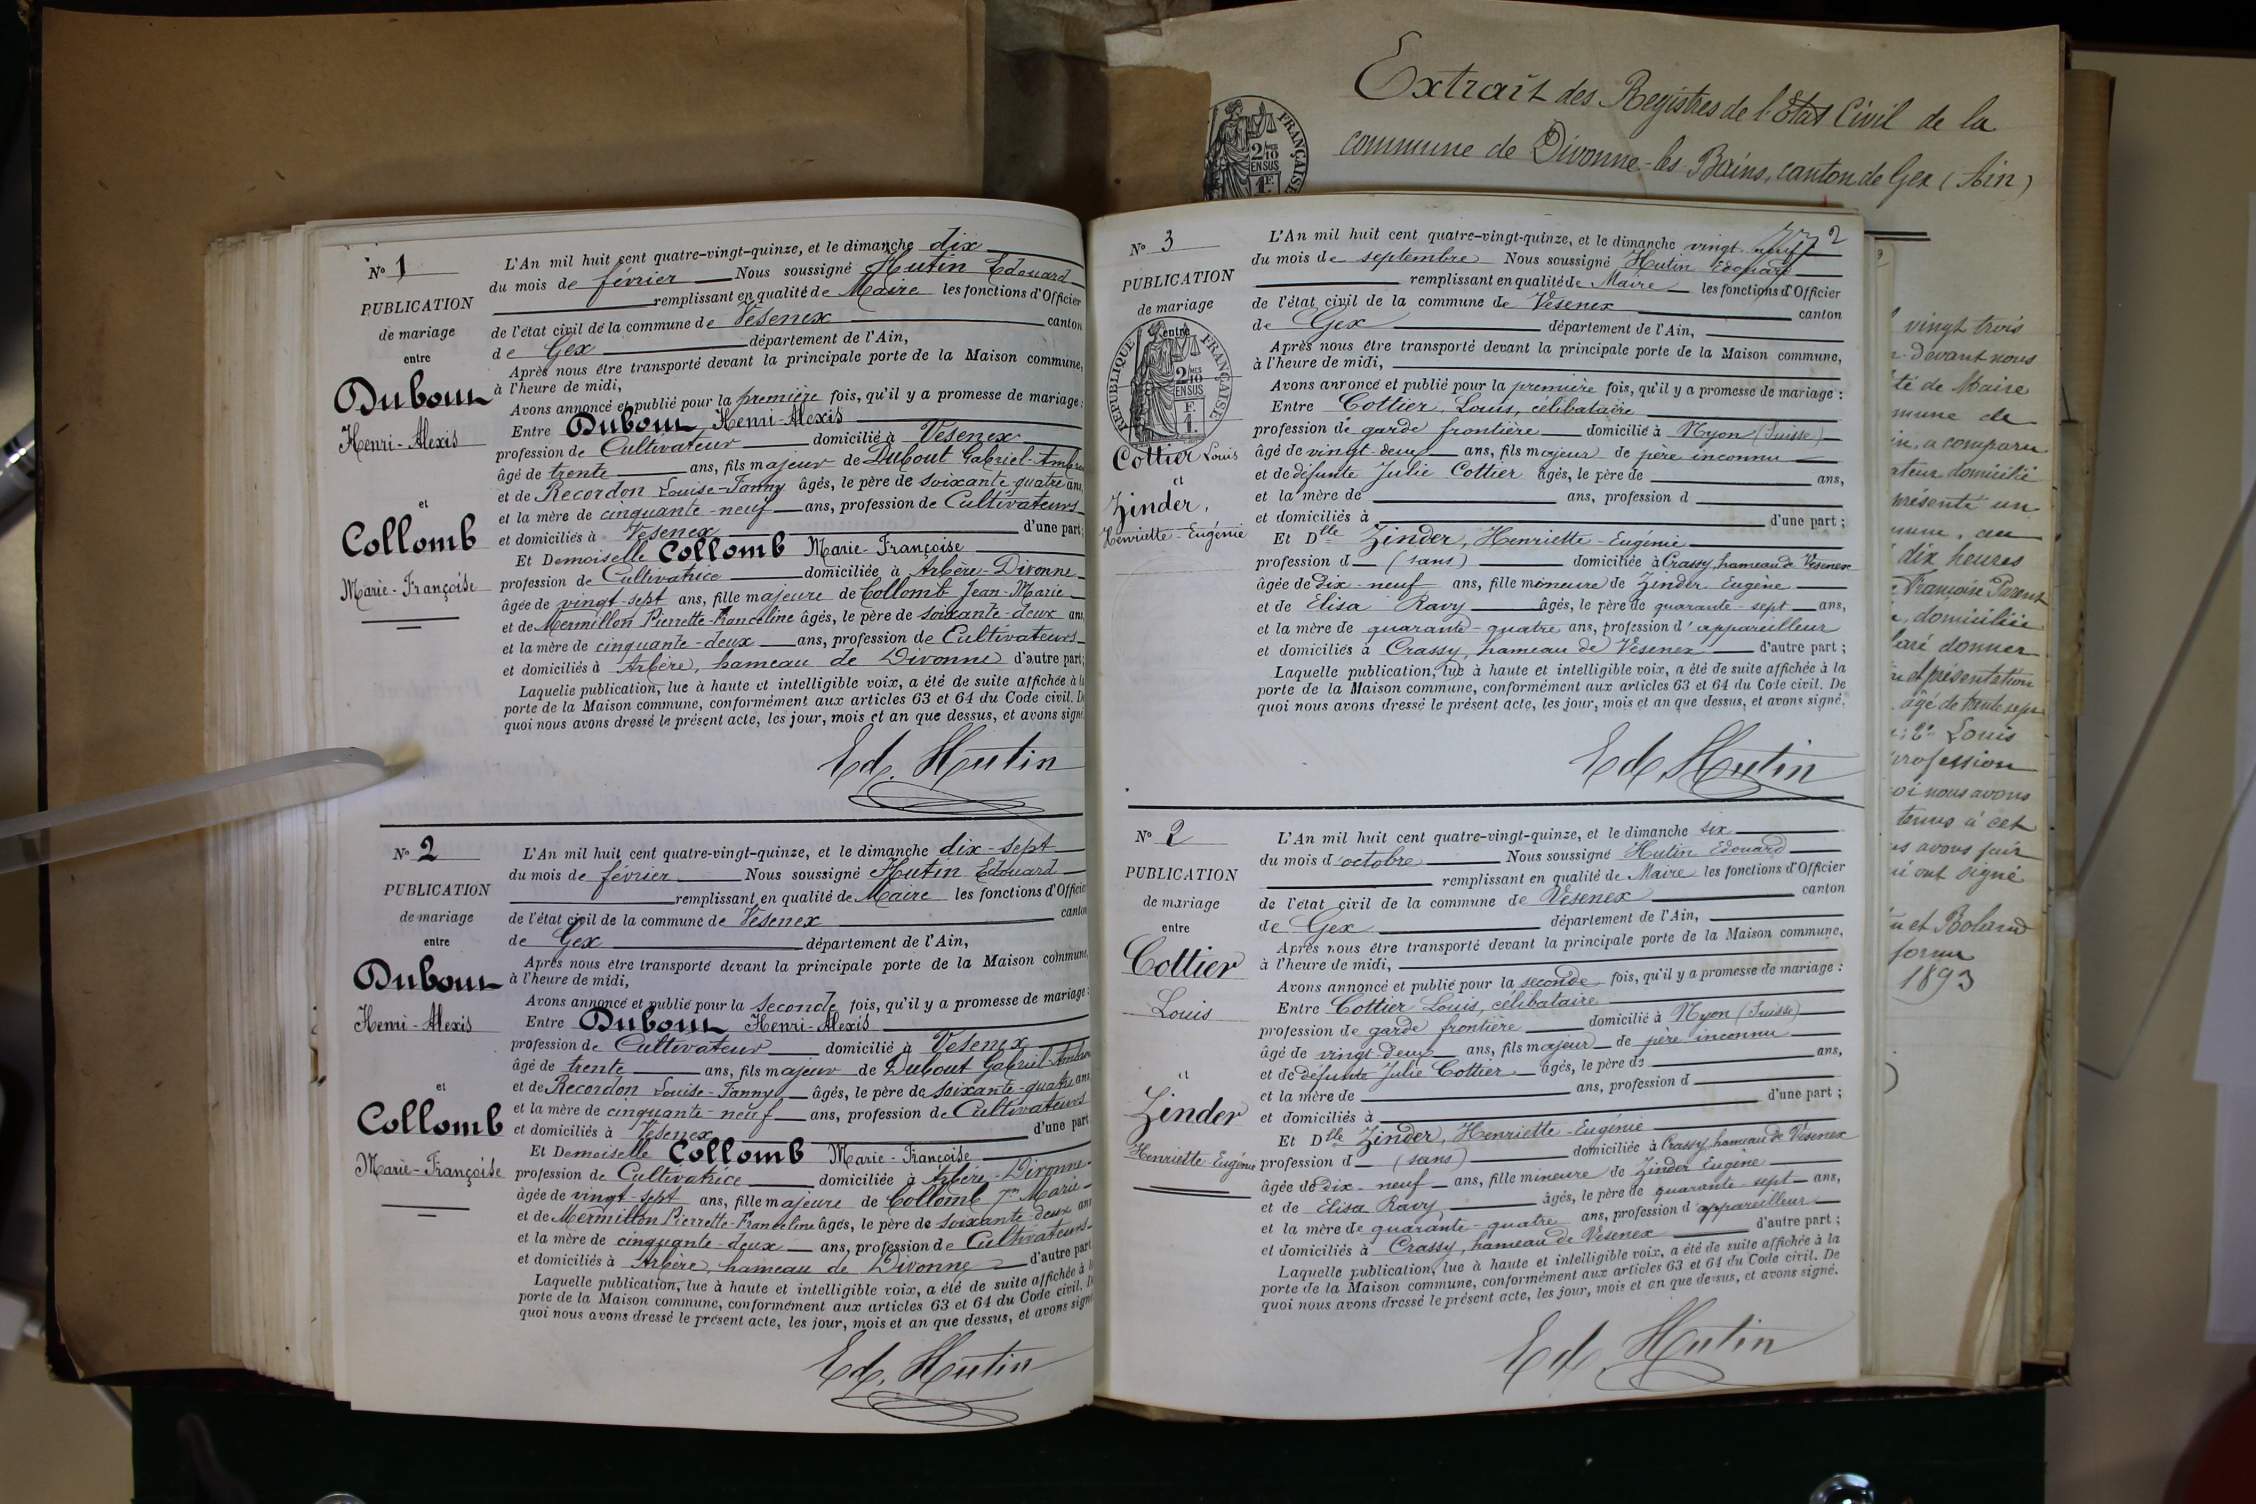 N° 1
PUBLICATION
de mariage
entre
Dubout
Henri-Alexis
et
Collomb
Marie-Françoise
L'An mil huit cent quatre-vingt-quinze, et le dimanche dix
du mois de février Nous soussigné Hutin Edouard
remplissant en qualité de Maire les fonctions d'Officier
de l'état civil de la commune de Vesenex canton
de Gex département de l'Ain,
Après nous être transporté devant la principale porte de la Maison commune,
à l'heure de midi,
Avons annoncé et publié pour la première fois, qu'il y a promesse de mariage :
Entre Dubout Henri-Alexis
profession de Cultivateur domicilié à Vesenex
âgé de trente ans, fils majeur de Dubout Gabriel-
et de Recordon Louise-Fanny âgés, le père de soixante-quatre ans,
et la mère de cinquante-neuf ans, profession de Cultivateurs
et domiciliés à Vesenex d'une part;
Et Demoiselle Collomb Marie-Françoise
profession de Cultivatrice domiciliée à Arbère-Divonne
âgée de vingt-sept ans, fille majeure de Collomb Jean-Marie
et de Mermillon Pierrette-Franceline âgés, le père de soixante-deux ans
et la mère de cinquante-deux ans, profession de Cultivateurs
et domiciliés à Arbère, hameau de Divonne d'autre part;
Laquelle publication, lue à haute et intelligible voix, a été de suite affichée à la
porte de la Maison commune, conformément aux articles 63 et 64 du Code civil. De
quoi nous avons dressé le présent acte, les jour, mois et an que dessus, et avons signé.
Ed. Hutin
N° 2
PUBLICATION
de mariage
entre
Dubout
Henri-Alexis
et
Collomb
Marie-Françoise
L'An mil huit cent quatre-vingt-quinze, et le dimanche dix-sept
du mois de février Nous soussigné Hutin Edouard
remplissant en qualité de Maire les fonctions d'Officier
de l'état civil de la commune de Vesenex canton
de Gex département de l'Ain,
Après nous être transporté devant la principale porte de la Maison commune,
à l'heure de midi,
Avons annoncé et publié pour la seconde fois, qu'il y a promesse de mariage :
Entre Dubout Henri-Alexis
profession de Cultivateur domicilié à Vesenex
âgé de trente ans, fils majeur de Dubout Gabriel-
et de Recordon Louise-Fanny âgés, le père de soixante-quatre ans
et la mère de cinquante-neuf ans, profession de Cultivateurs
et domiciliés à Vesenex d'une part
Et Demoiselle Collomb Marie-Françoise
profession de Cultivatrice domiciliée à Arbère-Divonne
âgée de vingt-sept ans, fille majeure de Collomb Jn Marie
et de Mermillon Pierrette-Franceline âgés, le père de soixante-deux ans
et la mère de cinquante-deux ans, profession de Cultivateurs
et domiciliés à Arbère, hameau de Divonne d'autre part
Laquelle publication, lue à haute et intelligible voix, a été de suite affichée à la
porte de la Maison commune, conformément aux articles 63 et 64 du Code civil. De
quoi nous avons dressé le présent acte, les jour, mois et an que dessus, et avons signé
Ed. Hutin
Extrait des Registres de l'Etat Civil de la
commune de Divonne-les-Bains, canton de Gex (Ain)
FRANÇAISE
2/10
EN SUS
1 F
2
N° 3
PUBLICATION
de mariage
entre
RÉPUBLIQUE FRANÇAISE
2/10
EN SUS
F.
1.
Cottier Louis
et
Zinder,
Henriette-Eugénie
L'An mil huit cent quatre-vingt-quinze, et le dimanche vingt neuf
du mois de septembre Nous soussigné Hutin Edouard
remplissant en qualité de Maire les fonctions d'Officier
de l'état civil de la commune de Vesenex canton
de Gex département de l'Ain,
Après nous être transporté devant la principale porte de la Maison commune,
à l'heure de midi,
Avons annoncé et publié pour la première fois, qu'il y a promesse de mariage :
Entre Cottier, Louis, célibataire
profession de garde frontière domicilié à Nyon (Suisse)
âgé de vingt-deux ans, fils majeur de père inconnu
et de défunte Julie Cottier âgés, le père de ans,
et la mère de ans, profession d
et domiciliés à d'une part ;
Et Dlle Zinder, Henriette-Eugénie
profession d (sans) domiciliée à Crassy, hameau de Vesenex
âgée de dix-neuf ans, fille mineure de Zinder Eugène
et de Elisa Ravy âgés, le père de quarante-sept ans,
et la mère de quarante-quatre ans, profession d'appareilleur
et domiciliés à Crassy, hameau de Vesenex d'autre part ;
Laquelle publication, lue à haute et intelligible voix, a été de suite affichée à la
porte de la Maison commune, conformément aux articles 63 et 64 du Code civil. De
quoi nous avons dressé le présent acte, les jour, mois et an que dessus, et avons signé.
Ed. Hutin
N° 2
PUBLICATION
de mariage
entre
Cottier
Louis
et
Zinder
Henriette Eugénie
L'An mil huit cent quatre-vingt-quinze, et le dimanche six
du mois d'octobre Nous soussigné Hutin Edouard
remplissant en qualité de Maire les fonctions d'Officier
de l'état civil de la commune de Vesenex canton
de Gex département de l'Ain,
Après nous être transporté devant la principale porte de la Maison commune,
à l'heure de midi,
Avons annoncé et publié pour la seconde fois, qu'il y a promesse de mariage :
Entre Cottier Louis, célibataire
profession de garde frontière domicilié à Nyon (Suisse)
âgé de vingt-deux ans, fils majeur de père inconnu
et de défunte Julie Cottier âgés, le père de ans,
et la mère de ans, profession d
et domiciliés à d'une part ;
Et Dlle Zinder, Henriette-Eugénie
profession d (sans) domiciliée à Crassy, hameau de Vesenex
âgée de dix-neuf ans, fille mineure de Zinder Eugène
et de Elisa Ravy âgés, le père de quarante-sept ans,
et la mère de quarante-quatre ans, profession d'appareilleur
et domiciliés à Crassy, hameau de Vesenex d'autre part ;
Laquelle publication, lue à haute et intelligible voix, a été de suite affichée à la
porte de la Maison commune, conformément aux articles 63 et 64 du Code civil. De
quoi nous avons dressé le présent acte, les jour, mois et an que dessus, et avons signé.
Ed. Hutin
vingt trois
devant nous
té de Maire
mune de
in, a comparu
ateur domicilié
présenté un
dix heures
Françoise
domiciliée
laré donner
et présentation
âgé de trente sept
2° Louis
profession
oi nous avons
tenus à cet
us avons fait
ui ont signé
et Boland
forme
1893